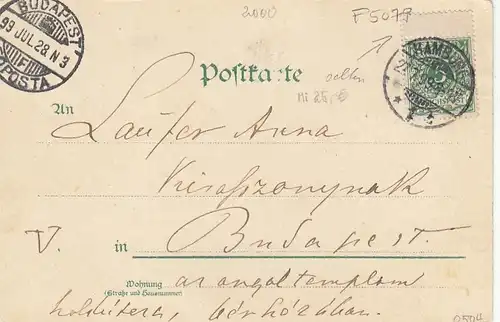 BUDAPEST
99 JUL.28.N3
F
POSTA
2000
F 5077
HAMBURG
Postkarte
selten
Mi 25,-€
An
Laufer Anna
Kisasszonynak
V. in Budapest.
Wohnung
(Straße und Hausnummer)
az angol templom
bérházában.